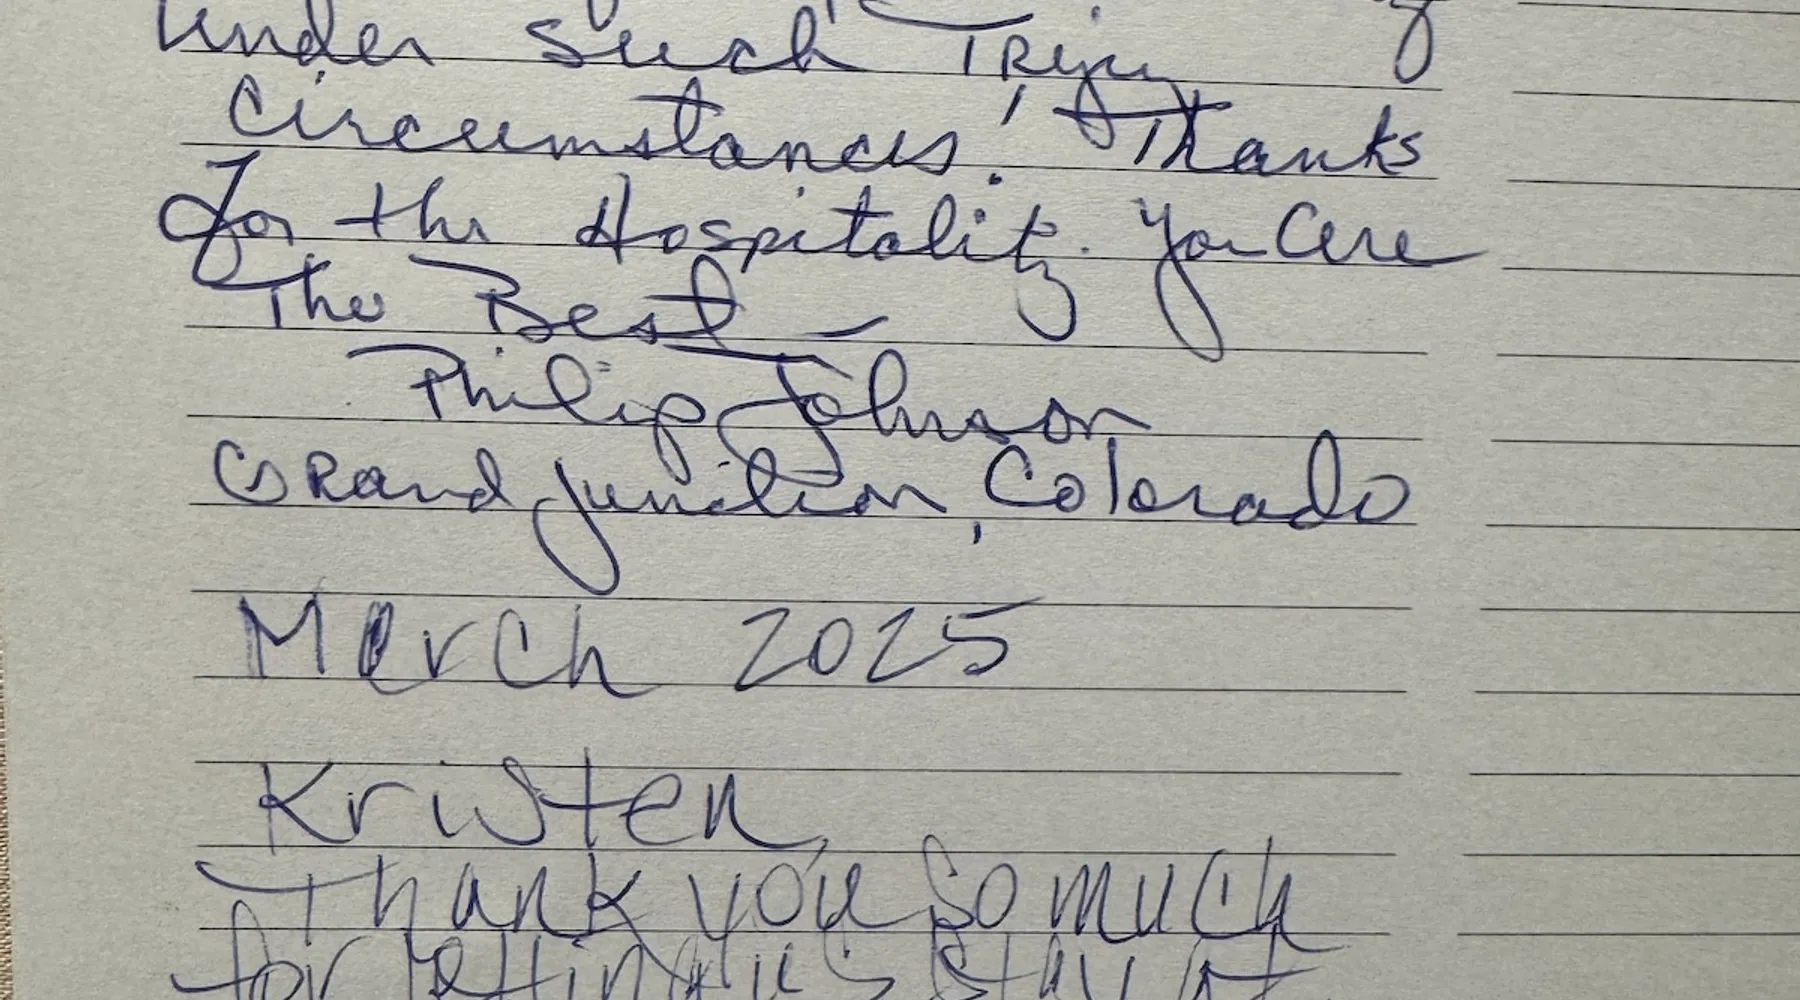 under such Trying
circumstances! Thanks
for the Hospitality. You are
The Best –
Philip Johnson
Grand Junction, Colorado
March 2025
Kristen,
Thank you so much
for letting us stay at